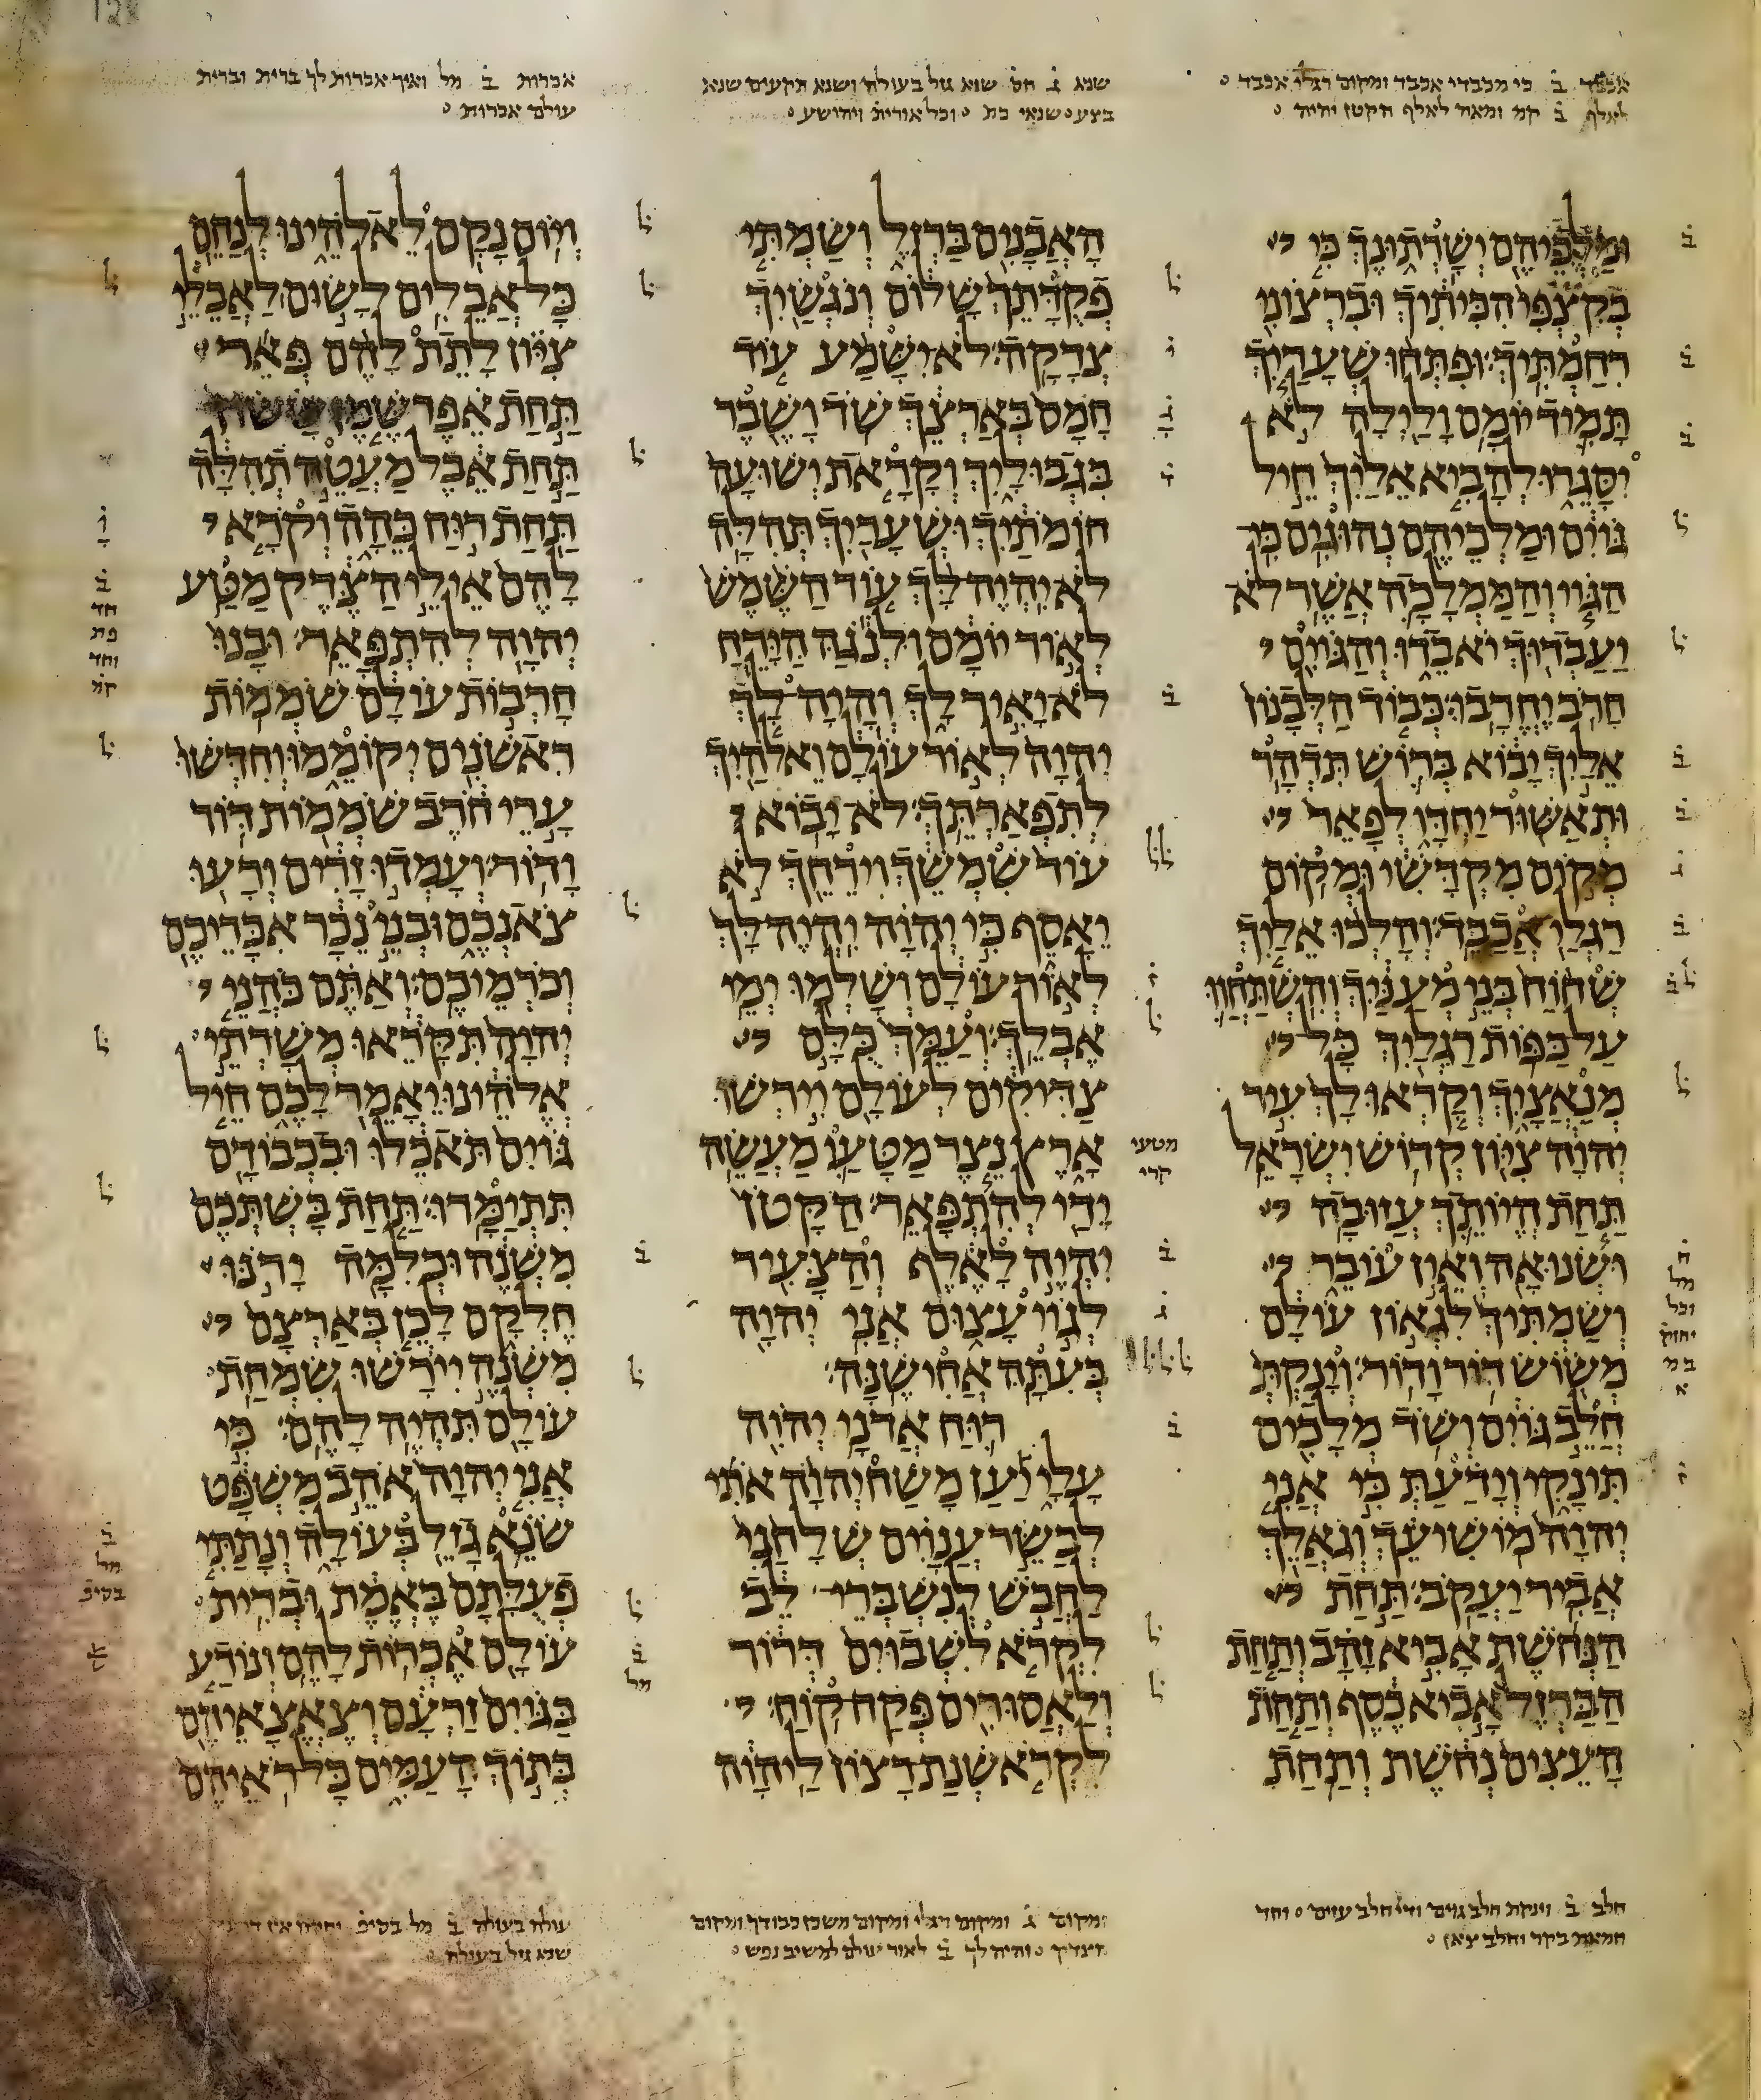 אכבד ב̇ כי מכבדי אכבד ומקום רגלי אכבד
לאלף ב̇ קמ ומאה לאלף הקטן יהיה
שנא ג̇ חס שנא גזל בעולה ושנא תקעים שנא
בצע שנאי בת וכל אורית ויהושע
אכרות ב̇ מל ואיך אכרות לך ברית וברית
עולם אכרות
וּמַלְכֵיהֶם יְשָׁרְתוּנֶךְ כִּי
בְקִצְפִּי הִכִּיתִיךְ וּבִרְצוֹנִי
רִחַמְתִּיךְ וּפִתְּחוּ שְׁעָרַיִךְ
תָּמִיד יוֹמָם וָלַיְלָה לֹא
יִסָּגֵרוּ לְהָבִיא אֵלַיִךְ חֵיל
גּוֹיִם וּמַלְכֵיהֶם נְהוּגִים כִּי
הַגּוֹי וְהַמַּמְלָכָה אֲשֶׁר לֹא
יַעַבְדוּךְ יֹאבֵדוּ וְהַגּוֹיִם
חָרֹב יֶחֱרָבוּ כְּבוֹד הַלְּבָנוֹן
אֵלַיִךְ יָבוֹא בְּרוֹשׁ תִּדְהָר
וּתְאַשּׁוּר יַחְדָּו לְפָאֵר
מְקוֹם מִקְדָּשִׁי וּמְקוֹם
רַגְלַי אֲכַבֵּד וְהָלְכוּ אֵלַיִךְ
שְׁחוֹחַ בְּנֵי מְעַנַּיִךְ וְהִשְׁתַּחֲווּ
עַל כַּפּוֹת רַגְלַיִךְ כָּל
מְנַאֲצָיִךְ וְקָרְאוּ לָךְ עִיר
יְהוָה צִיּוֹן קְדוֹשׁ יִשְׂרָאֵל
תַּחַת הֱיוֹתֵךְ עֲזוּבָה
וּשְׂנוּאָה וְאֵין עוֹבֵר
וְשַׂמְתִּיךְ לִגְאוֹן עוֹלָם
מְשׂוֹשׂ דּוֹר וָדוֹר וְיָנַקְתְּ
חֲלֵב גּוֹיִם וְשֹׁד מְלָכִים
תִּינָקִי וְיָדַעַתְּ כִּי אֲנִי
יְהוָה מוֹשִׁיעֵךְ וְגֹאֲלֵךְ
אֲבִיר יַעֲקֹב תַּחַת
הַנְּחֹשֶׁת אָבִיא זָהָב וְתַחַת
הַבַּרְזֶל אָבִיא כֶסֶף וְתַחַת
הָעֵצִים נְחֹשֶׁת וְתַחַת
הָאֲבָנִים בַּרְזֶל וְשַׂמְתִּי
פְקֻדָּתֵךְ שָׁלוֹם וְנֹגְשַׂיִךְ
צְדָקָה לֹא יִשָּׁמַע עוֹד
חָמָס בְּאַרְצֵךְ שֹׁד וָשֶׁבֶר
בִּגְבוּלָיִךְ וְקָרָאת יְשׁוּעָה
חוֹמֹתַיִךְ וּשְׁעָרַיִךְ תְּהִלָּה
לֹא יִהְיֶה לָּךְ עוֹד הַשֶּׁמֶשׁ
לְאוֹר יוֹמָם וּלְנֹגַהּ הַיָּרֵחַ
לֹא יָאִיר לָךְ וְהָיָה לָךְ
יְהוָה לְאוֹר עוֹלָם וֵאלֹהַיִךְ
לְתִפְאַרְתֵּךְ לֹא יָבוֹא
עוֹד שִׁמְשֵׁךְ וִירֵחֵךְ לֹא
יֵאָסֵף כִּי יְהוָה יִהְיֶה לָּךְ
לְאוֹר עוֹלָם וְשָׁלְמוּ יְמֵי
אֶבְלֵךְ וְעַמֵּךְ כֻּלָּם
צַדִּיקִים לְעוֹלָם יִירְשׁוּ
אָרֶץ נֵצֶר מַטָּעַו מַעֲשֵׂה
יָדַי לְהִתְפָּאֵר הַקָּטֹן
יִהְיֶה לָאֶלֶף וְהַצָּעִיר
לְגוֹי עָצוּם אֲנִי יְהוָה
בְּעִתָּהּ אֲחִישֶׁנָּה
רוּחַ אֲדֹנָי יְהוִה
עָלָי יַעַן מָשַׁח יְהוָה אֹתִי
לְבַשֵּׂר עֲנָוִים שְׁלָחַנִי
לַחֲבֹשׁ לְנִשְׁבְּרֵי לֵב
לִקְרֹא לִשְׁבוּיִם דְּרוֹר
וְלַאֲסוּרִים פְּקַח קוֹחַ
לִקְרֹא שְׁנַת רָצוֹן לַיהוָה
וְיוֹם נָקָם לֵאלֹהֵינוּ לְנַחֵם
כָּל אֲבֵלִים לָשׂוּם לַאֲבֵלֵי
צִיּוֹן לָתֵת לָהֶם פְּאֵר
תַּחַת אֵפֶר שֶׁמֶן שָׂשׂוֹן
תַּחַת אֵבֶל מַעֲטֵה תְהִלָּה
תַּחַת רוּחַ כֵּהָה וְקֹרָא
לָהֶם אֵילֵי הַצֶּדֶק מַטַּע
יְהוָה לְהִתְפָּאֵר וּבָנוּ
חָרְבוֹת עוֹלָם שֹׁמְמוֹת
רִאשֹׁנִים יְקוֹמֵמוּ וְחִדְּשׁוּ
עָרֵי חֹרֶב שֹׁמְמוֹת דּוֹר
וָדוֹר וְעָמְדוּ זָרִים וְרָעוּ
צֹאנְכֶם וּבְנֵי נֵכָר אִכָּרֵיכֶם
וְכֹרְמֵיכֶם וְאַתֶּם כֹּהֲנֵי
יְהוָה תִּקָּרֵאוּ מְשָׁרְתֵי
אֱלֹהֵינוּ יֵאָמֵר לָכֶם חֵיל
גּוֹיִם תֹּאכֵלוּ וּבִכְבוֹדָם
תִּתְיַמָּרוּ תַּחַת בָּשְׁתְּכֶם
מִשְׁנֶה וּכְלִמָּה יָרֹנּוּ
חֶלְקָם לָכֵן בְּאַרְצָם
מִשְׁנֶה יִירָשׁוּ שִׂמְחַת
עוֹלָם תִּהְיֶה לָהֶם כִּי
אֲנִי יְהוָה אֹהֵב מִשְׁפָּט
שֹׂנֵא גָזֵל בְּעוֹלָה וְנָתַתִּי
פְעֻלָּתָם בֶּאֱמֶת וּבְרִית
עוֹלָם אֶכְרוֹת לָהֶם וְנוֹדַע
בַּגּוֹיִם זַרְעָם וְצֶאֱצָאֵיהֶם
בְּתוֹךְ הָעַמִּים כָּל רֹאֵיהֶם
מטעי
קרי
חלב ב̇ וינקת חלב גוים ודי חלב עזים וחד
חמאת בקר וחלב צאן
ומקום ג̇ ומקום רגלי ומקום משכן כבודך ומקום
והיה לך ב̇ לאור עולם למשיב נפש
עולה בעולה ב̇ מל בסיפ
שנא גזל בעולה